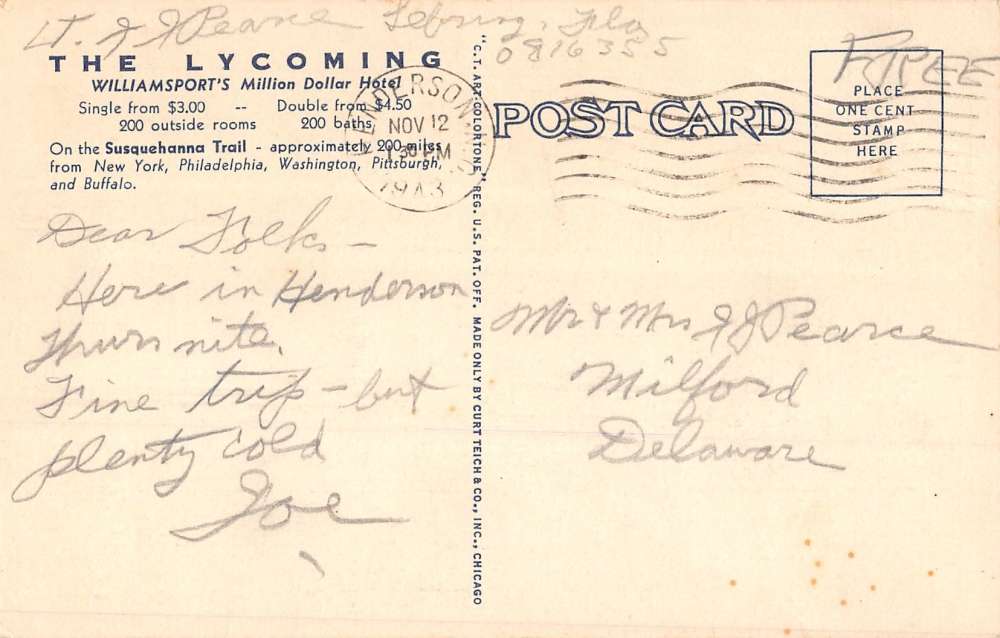 Lt. J J Pearce Sebring, Fla
0816355
THE LYCOMING
WILLIAMSPORT'S Million Dollar Hotel
Single from $3.00 -- Double from $4.50
200 outside rooms 200 baths
On the Susquehanna Trail - approximately 200 miles
from New York, Philadelphia, Washington, Pittsburgh,
and Buffalo.
HENDERSON
NOV 12
30 PM
1943
"C.T. ART-COLORTONE" REG. U.S. PAT. OFF. MADE ONLY BY CURT TEICH & CO., INC., CHICAGO
POST CARD
FREE
PLACE
ONE CENT
STAMP
HERE
Dear Folks -
Here in Henderson
Thurs nite.
Fine trip - but
plenty cold
Joe
Mr & Mrs J J Pearce
Milford
Delaware